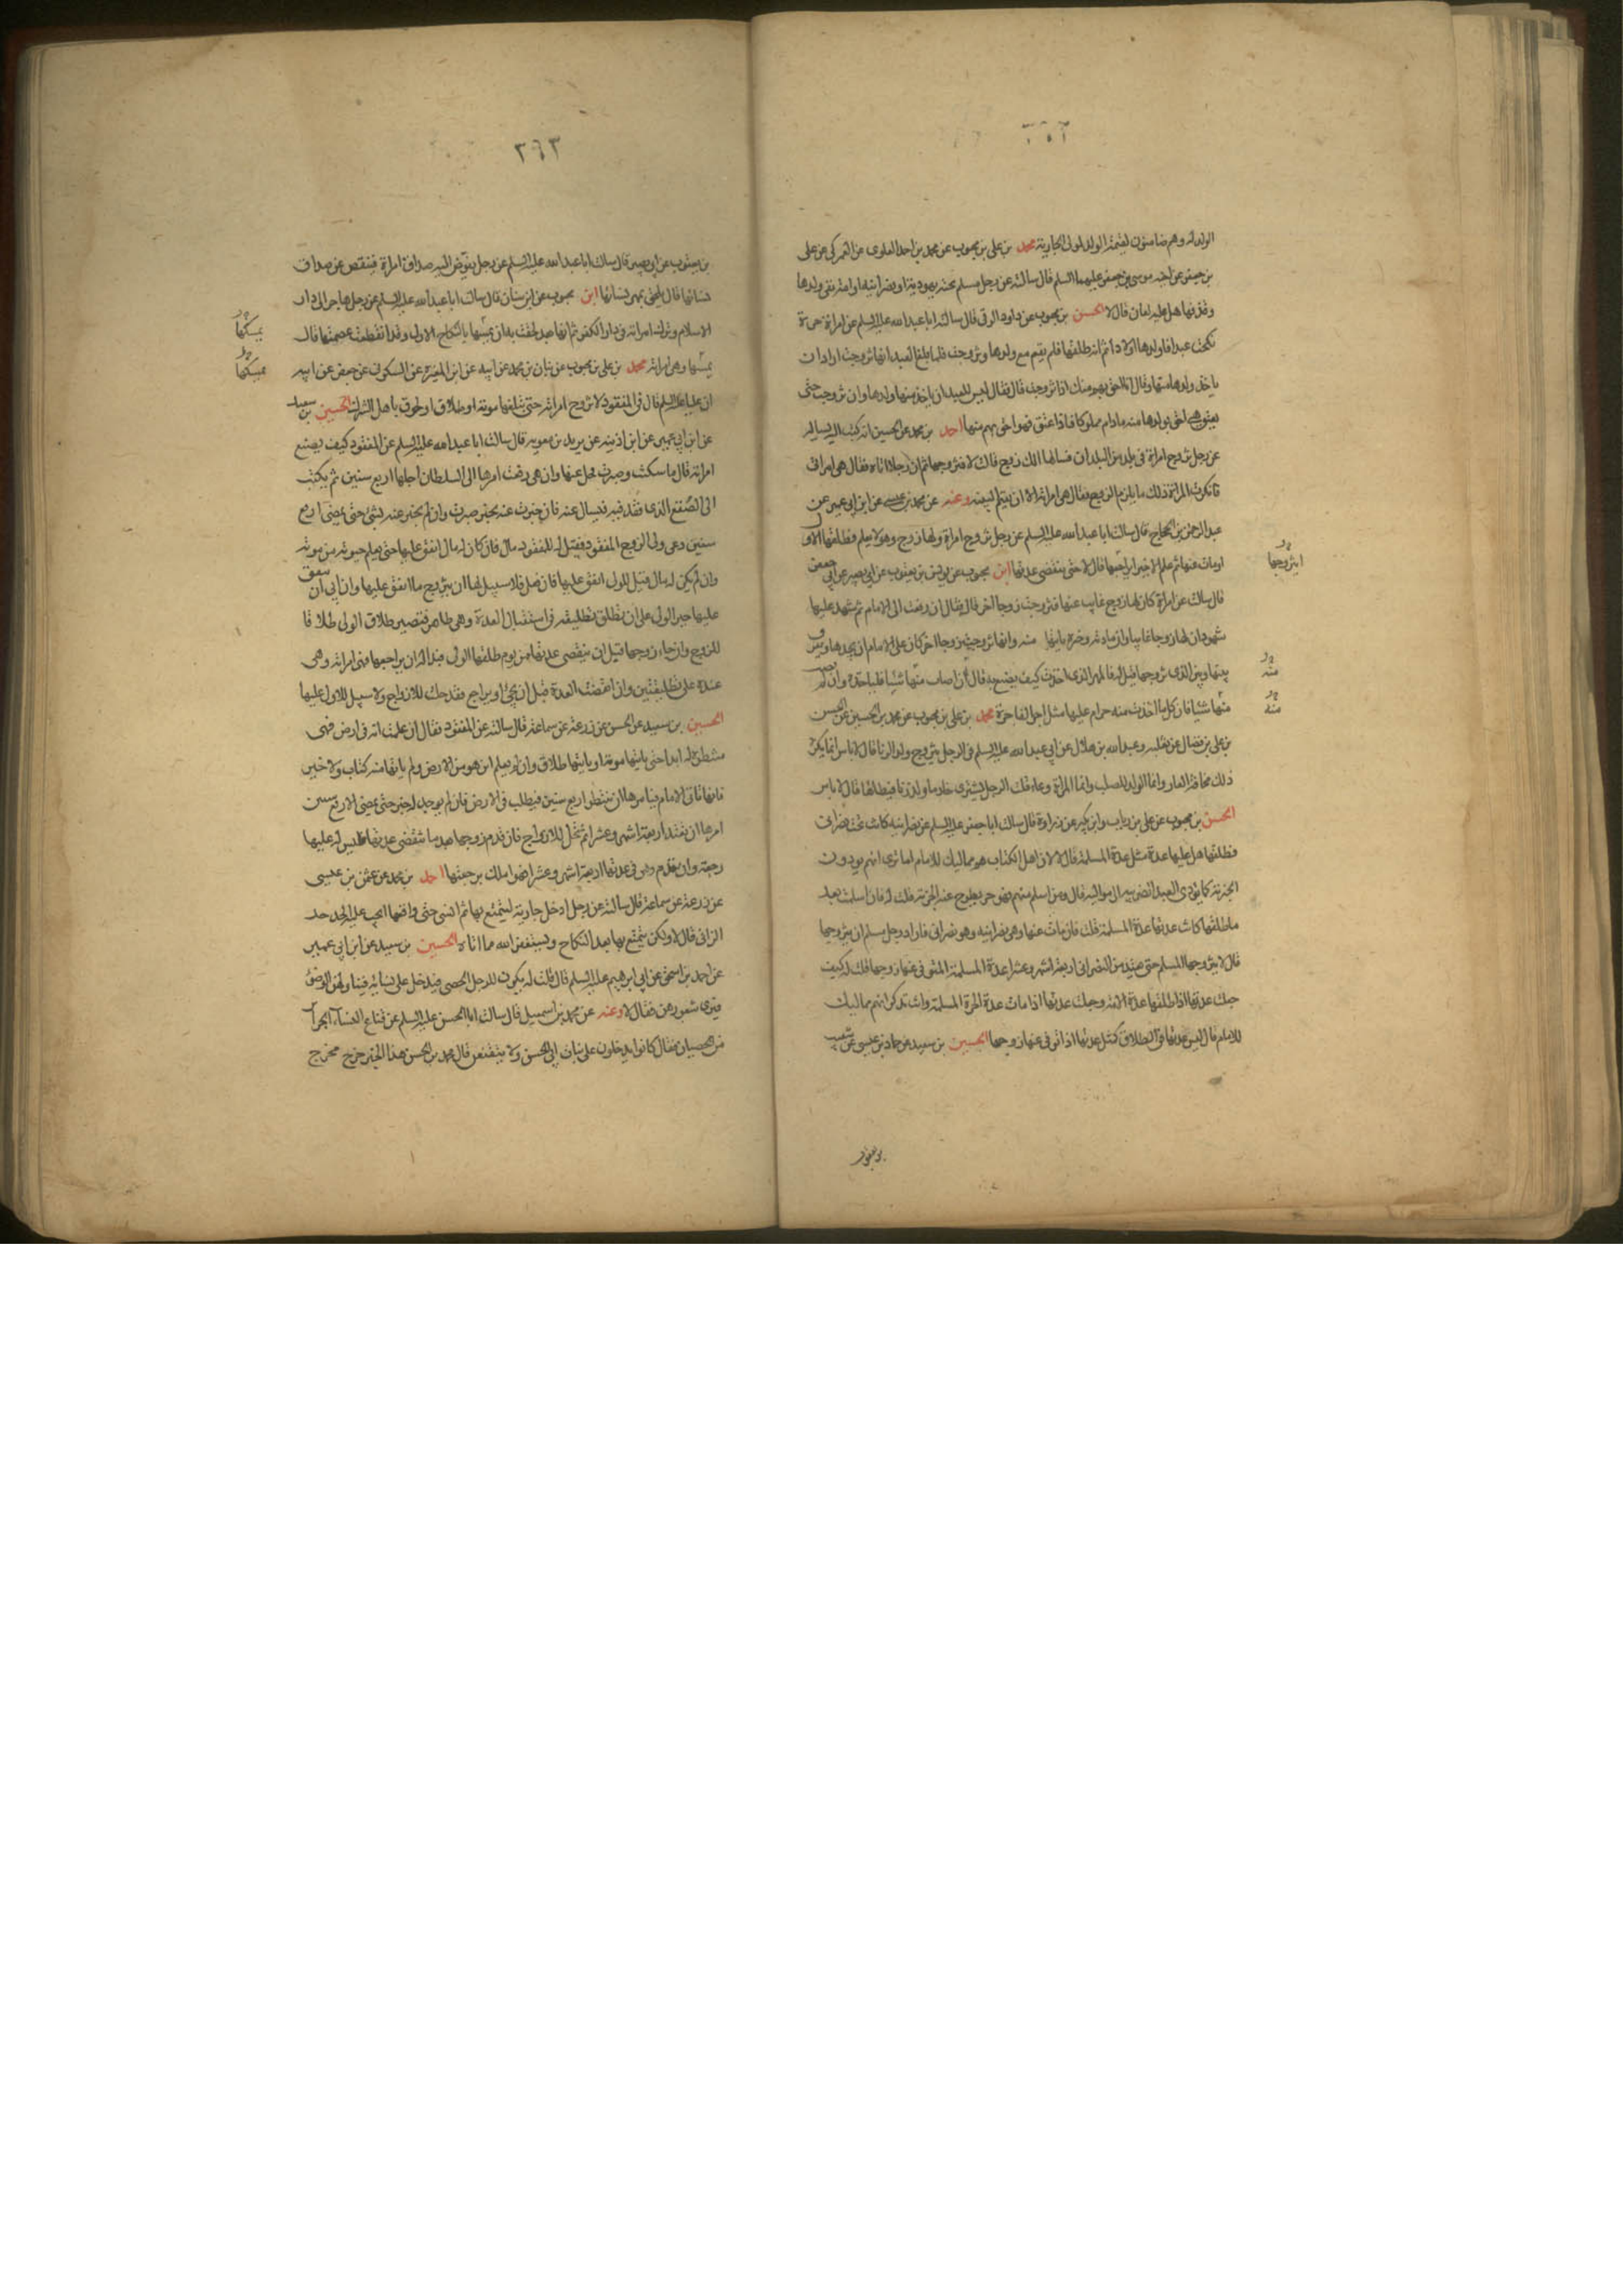 الولد له وهم ضامنون لقيمة الولد لمولى الجارية محمد بن علي بن محبوب عن محمد بن احمد العلوي عن العمركي عن علي
بن جعفر عن اخيه موسى بن جعفر عليهما السلم قال سالته عن رجل مسلم تحته يهودية او نصرانية او امة نفى ولدها
وقذفها هل عليه لعان قال لا الحسن بن محبوب عن داود الرقي قال سالت ابا عبد الله عليه السلم عن امراة حرة
نكحت عبدا فاولدها اولادا ثم انه طلقها فلم تقم مع ولدها وتزوجت فلما بلغ العبد انها تزوجت اراد ان
ياخذ ولدها منها وقال انا احق بهم منك اذا تزوجت قال فقال ليس للعبد ان ياخذ منها ولدها وان تزوجت حتى
يعتق هي احق بولدها منه ما دام مملوكا فاذا عتق فهو احق بهم منها احمد بن محمد عن الحسين انه كتب اليه يساله
عن رجل تزوج امراة في بلد من البلدان فسالها الك زوج قالت لا فتزوجها ثم ان رجلا اتاه فقال هي امراتي
فانكرت المراة ذلك ما يلزم الزوج فقال هي امراته الا ان يقيم البينه وعنه عن محمد بن عيسى عن ابن ابي عمير عن
عبد الرحمن بن الحجاج قال سالت ابا عبد الله عليه السلم عن رجل تزوج امراة ولها زوج وهو لا يعلم فطلقها الاول
او مات عنها ثم علم الاخير ايراجعها قال لا حتى تنقضي عدتها ابن محبوب عن يونس بن يعقوب عن ابي بصير عن ابي جعفر
قال سالت عن امراة كان لها زوج غايب عنها فتزوجت زوجا اخر قال فقال ان رفعت الى الامام ثم شهد عليها
شهود ان لها زوجا غايبا وان مادته وخبره ياتيها منه وانها تزوجت زوجا اخر كان على الامام ان يحدها ويفرق
بينها وبين الذي تزوجها قيل له فالمهر الذي اخذت كيف يصنع به قال ان اصاب منها شيئا فلياخذه وان لم يصب
منها شيئا فان كل ما اخذت منه حرام عليها مثل اجر الفاجرة محمد بن علي بن محبوب عن محمد بن الحسين عن الحسن
بن علي بن فضال عن ثعلبه وعبد الله بن هلال عن ابي عبد الله عليه السلم في الرجل يتزوج ولد الزنا قال لا باس انما يكره
ذلك مخافة العار وانما الولد للصلب وانما المراة وعاء قلت الرجل يشتري خادما ولد زنا فيطاها قال لا باس
الحسن بن محبوب عن علي بن رياب وابن بكير عن زرارة قال سالت ابا جعفر عليه السلم عن نصرانيه كانت تحت نصراني
فطلقها هل عليها عدة مثل عدة المسلمة قال لا لان اهل الكتاب هم مماليك للامام اما ترى انهم يودون
الجزية كما يؤدي العبد الضريبه الى مواليه قال ومن اسلم منهم فهو حر يطرح عنه الجزية قلت له فان اسلمت بعد
ما طلقها كانت عدتها عدة المسلمة قلت فان مات عنها وهي نصرانيه وهو نصراني فاراد رجل مسلم ان يتزوجها
قال لا يتزوجها المسلم حتى تعتد من النصراني اربعة اشهر وعشرا عدة المسلمة المتوفى عنها زوجها قلت له كيف
جعلت عدتها اذا طلقها عدة الامة وجعلت عدتها اذا مات عدة الحرة المسلمة وانت تذكر انهم مماليك
للامام قال ليس عدتها في الطلاق كمثل عدتها اذا توفي عنها زوجها الحسين بن سعيد عن حماد بن عيسى عن شعيب
بن يعقوب
ايتزوجها
منه
منه
٣٦٣
بن يعقوب عن ابي بصير قال سالت ابا عبد الله عليه السلم عن رجل يفوض اليه صداق امراة فينقص عن صداق
نسائها قال يلحق بمهر نسائها ابن محبوب عن ابن سنان قال سالت ابا عبد الله عليه السلم عن رجل هاجر الى دار
الاسلام وترك امراته في دار الكفر ثم انها بعد لحقت به ان يمسها بالنكاح الاول وقد انقطعت عصمتها قال
يمسها وهي امراته محمد بن علي بن محبوب عن بنان بن محمد عن ابيه عن ابن المغيرة عن السكوني عن جعفر عن ابيه
ان عليا عليه السلم قال في المفقود لا تزوج امراته حتى تبلغها موته او طلاق او لحوق باهل الشرك الحسين بن سعيد
عن ابن ابي عمير عن ابن اذينه عن بريد بن معويه قال سالت ابا عبد الله عليه السلم عن المفقود كيف يصنع
امراته قال ما سكتت وصبرت يخلى عنها وان هي رفعت امرها الى السلطان اجلها اربع سنين ثم يكتب
الى الصقع الذي فقد فيه فيسال عنه فان خبرت عنه بخبر صبرت وان لم يخبر عنه بشئ حتى يمضي اربع
سنين دعى ولى الزوج المفقود فقيل له للمفقود مال فان كان له مال انفق عليها حتى يعلم حيوته من موته
وان لم يكن له مال قيل للولى انفق عليها فان فعل فلا سبيل لها ان يتزوج ما انفق عليها وان ابي ان ينفق
عليها جبر الولي على ان تطلق تطليقه في استقبال العدة وهي طاهر فتصير طلاق الولي طلاقا
للزوج وان جاء زوجها قبل ان ينقضي عدتها من يوم طلقها الولي فبدا له ان يراجعها فهي امراته وهي
عنده على تطليقتين وان انقضت العدة قبل ان يجئ او يراجع فقد حلت للازواج ولا سبيل للاول عليها
الحسين بن سعيد عن الحسن عن زرعة عن سماعة قال سالته عن المفقود فقال ان علمت انه في ارض فهي
منتظرة له ابدا حتى ياتيها موته او ياتيها طلاق وان لم يعلم اين هو من الارض ولم ياتها منه كتاب ولا خبر
فانها تاتي الامام فيامرها ان تنتظر اربع سنين فيطلب في الارض فان لم يوجد له خبر حتى يمضي الاربع سنين
امرها ان تعتد اربعة اشهر وعشرا ثم تحل للازواج فان قدم زوجها بعد ما تنقضي عدتها فليس له عليها
رجعة وان قدم وهي في عدتها اربعة اشهر وعشرا فهو املك برجعتها احمد بن محمد عن عثمن بن عيسى
عن زرعة عن سماعة قال سالته عن رجل ادخل جارية ليتمتع بها ثم انسى حتى واقعها ايجب عليه الحد حد
الزاني قال لا ولكن يتمتع بها بعد النكاح ويستغفر الله مما اتاه الحسين بن سعيد عن ابن ابي عمير
عن احمد بن اسحق عن ابي ابرهيم عليه السلم قال قلت له يكون للرجل الخصي فيدخل على نسائه فيناولهن الوضوء
فيرى شعورهن فقال لا وعنه عن محمد بن اسمعيل قال سالت ابا الحسن عليه السلم عن قناع النساء الحراير
من الخصيان فقال كانوا يدخلون على بنات ابي الحسن ولا يتقنعن قال محمد بن الحسن هذا الخبر خرج مخرج
يمسكها
يمسكها